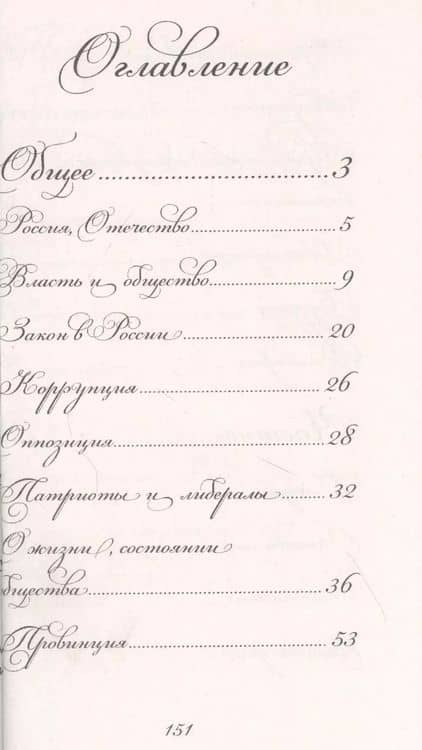 Оглавление
Общее....................................3
Россия, Отечество.............................5
Власть и общество.........................9
Закон в России............................20
Коррупция....................................26
Оппозиция........................................28
Патриоты и либералы..........32
О жизни, состоянии
бщества............................................36
Провинция......................................53
151